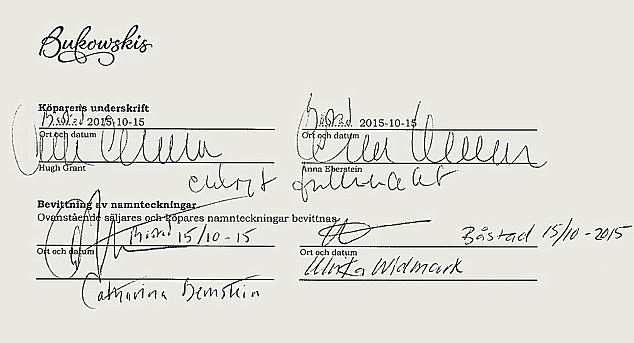 Bukowskis
Köparens underskrift
Båstad 2015-10-15 Båstad 2015-10-15
Ort och datum Ort och datum
Hugh Grant Anna Eberstein
enligt fullmakt
Bevittning av namnteckningar
Ovanstående säljares och köpares namnteckningar bevittnas
Båstad 15/10-15 Båstad 15/10-2015
Ort och datum Ort och datum
Ulrika Widmark
Catharina Bernstein